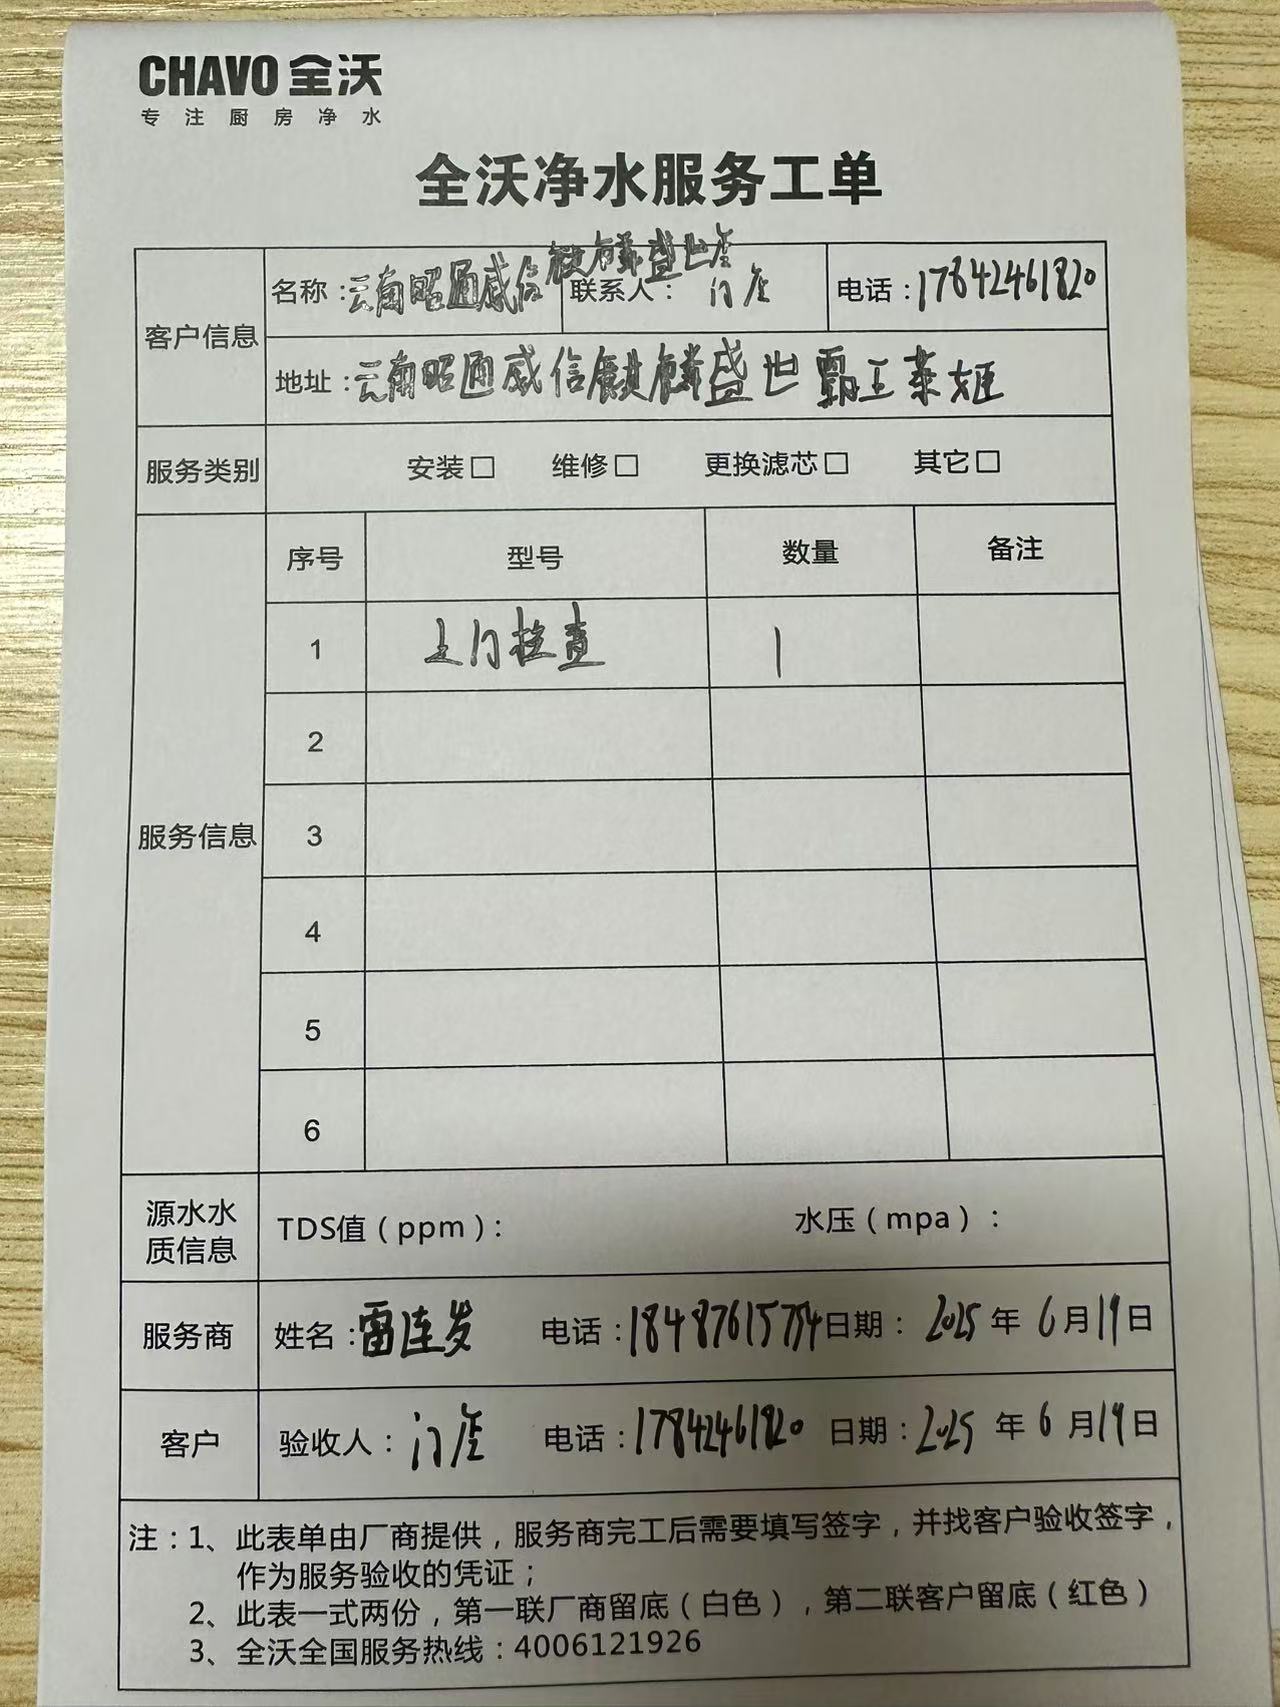 CHAVO 全沃
专注厨房净水
全沃净水服务工单
客户信息
名称：云南昭通威信麒麟盛世店
联系人：门店
电话：17842461820
地址：云南昭通威信麒麟盛世霸王茶姬
服务类别
安装□ 维修□ 更换滤芯□ 其它□
服务信息
序号 型号 数量 备注
1 上门检查 1
2
3
4
5
6
源水水质信息
TDS值（ppm）： 水压（mpa）：
服务商 姓名：雷连发 电话：18487615754 日期：2025年6月19日
客户 验收人：门店 电话：17842461820 日期：2025年6月19日
注：1、此表单由厂商提供，服务商完工后需要填写签字，并找客户验收签字，
作为服务验收的凭证；
2、此表一式两份，第一联厂商留底（白色），第二联客户留底（红色）
3、全沃全国服务热线：4006121926